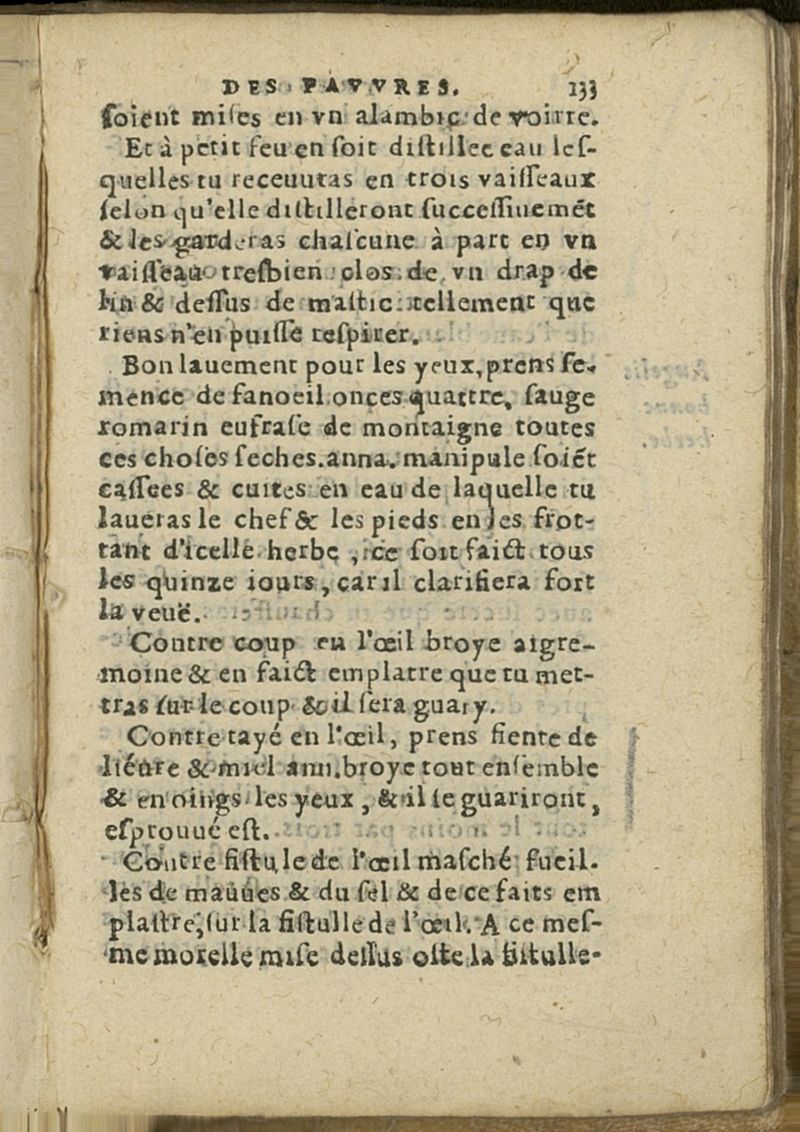 DES PAVVRES. 133
ſoient miſes en vn alambic de voirre.
Et à petit feu en ſoit diſtillee eau leſ-
quelles tu receuuras en trois vaiſſeaux
ſelon qu'elle diſtilleront ſucceſſiuemét
& les garderas chaſcune à part en vn
vaiſſeau treſbien clos de vn drap de
lin & deſſus de maſtic tellement que
riens n'en puiſſe reſpirer.
Bon lauement pour les yeux, prens ſe-
mence de fanoeil onces quattre, ſauge
romarin eufraſe de montaigne toutes
ces choſes ſeches.anna. manipule ſoiét
caſſees & cuites en eau de laquelle tu
laueras le chef & les pieds en les frot-
tant d'icelle herbe, ce ſoit faict tous
les quinze iours, car il clarifiera fort
la veuë.
Contre coup en l'œil broye aigre-
moine & en faict emplatre que tu met-
tras ſur le coup & il ſera guary.
Contre tayé en l'œil, prens fiente de
liéure & miel ann.broye tout enſemble
& en oings les yeux, & il ſe guariront,
eſprouué eſt.
Contre fiſtule de l'œil maſché fueil-
les de mauues & du ſel & de ce faits em
plaſtre, ſur la fiſtulle de l'œil. A ce meſ-
me morelle miſe deſſus oſte la fiſtulle-